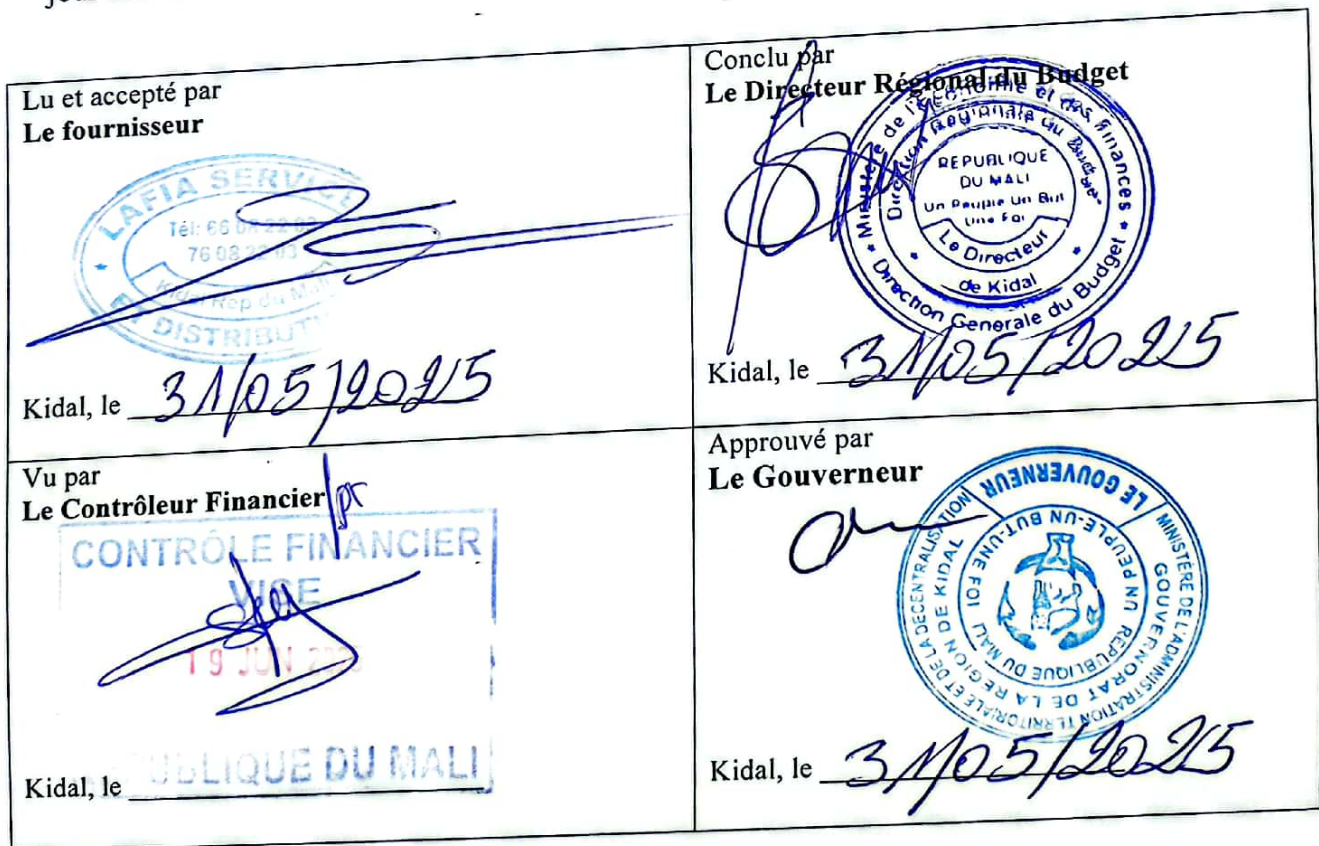 Lu et accepté par
Le fournisseur
LAFIA SERVICE
Tél: 66 08 22 03
76 08 22 03
Kidal Rep du Mali
ET DISTRIBUTION
Kidal, le 31/05/2025
Conclu par
Le Directeur Régional du Budget
Ministère de l'Economie et des Finances
Direction Régionale du Budget
REPUBLIQUE
DU MALI
Un Peuple Un But
Une Foi
Le Directeur
de Kidal
Direction Generale du Budget
Kidal, le 31/05/2025
Vu par
Le Contrôleur Financier
pr
CONTRÔLE FINANCIER
19 JUN
REPUBLIQUE DU MALI
Kidal, le
Approuvé par
Le Gouverneur
LE GOUVERNEUR
MINISTÈRE DE L'ADMINISTRATION TERRITORIALE ET DE LA DECENTRALISATION
GOUVERNORAT DE LA REGION DE KIDAL
REPUBLIQUE DU MALI
UN PEUPLE-UN BUT-UNE FOI
Kidal, le 31/05/2025